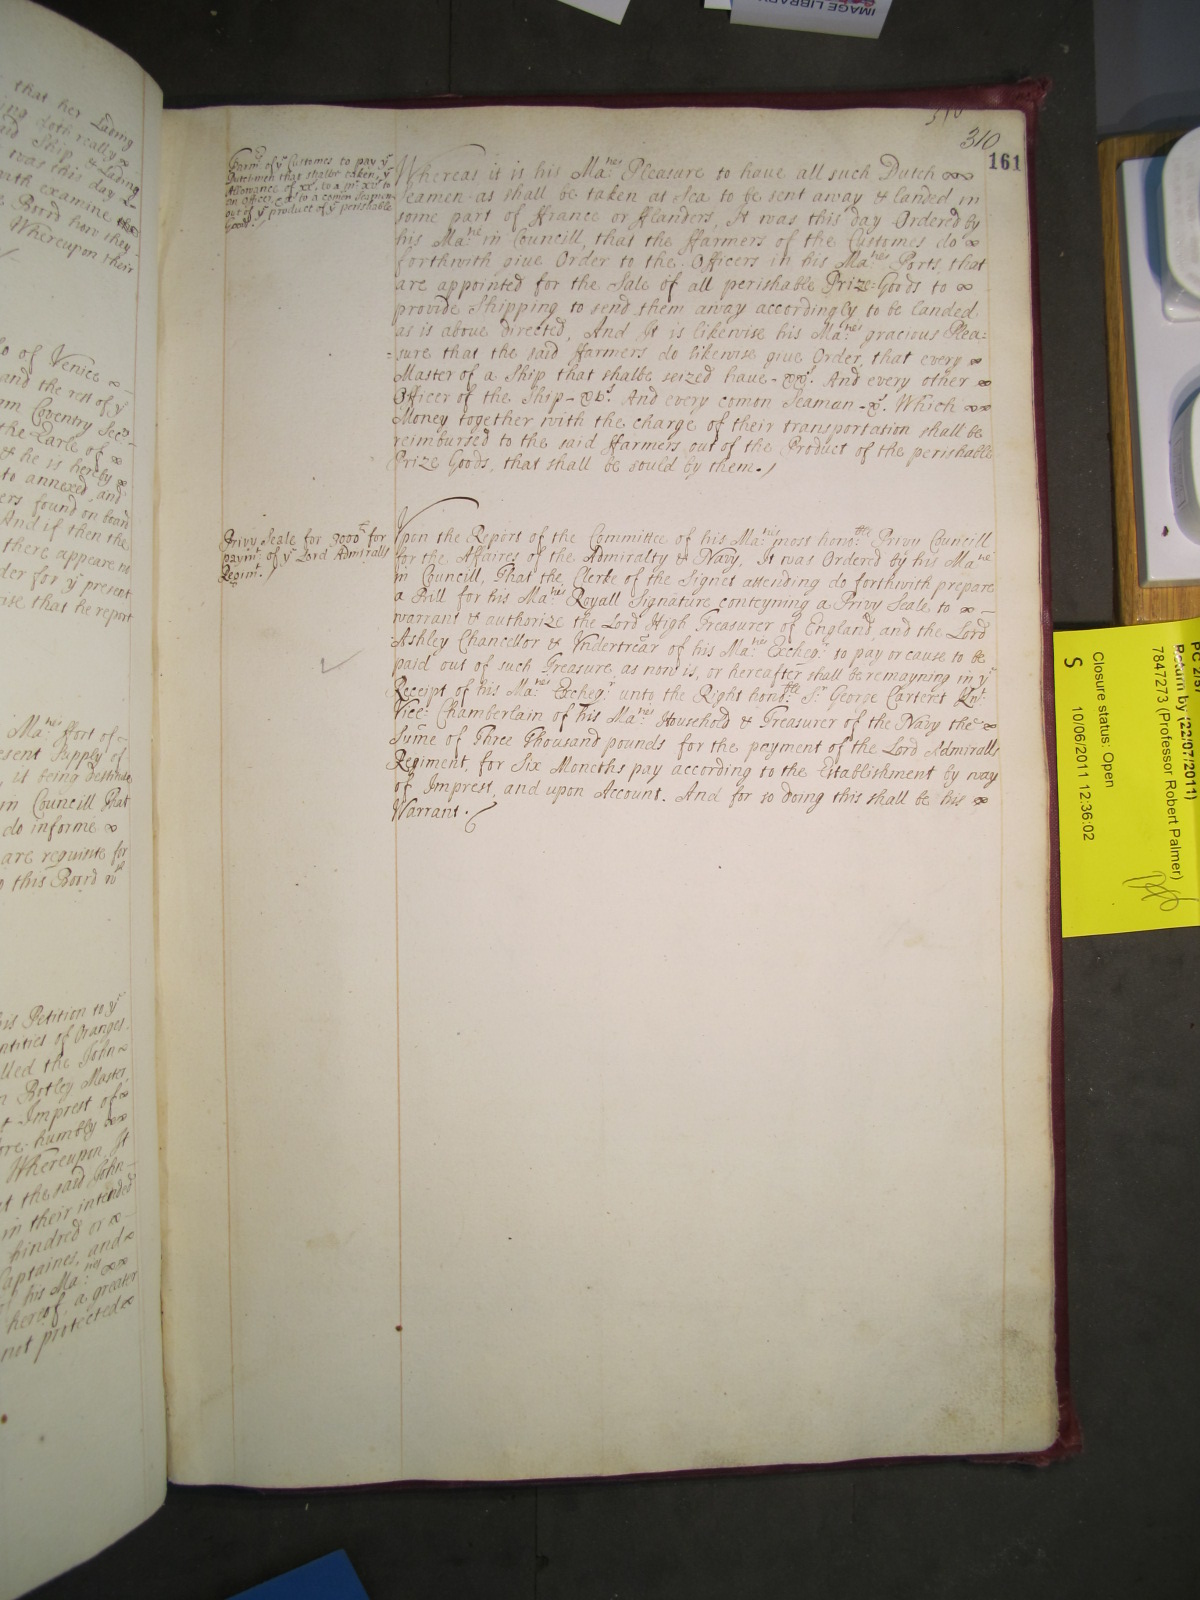 that her Lading
ing doth really
said Ship & Lading
was this day
with examine the
Bord how they
Whereupon their
of Venice
and the rest of yͤ
Coventry Secʳʸ
the Earle of
& he is hereby
to annexed, and
found on board
And if then the
there appeare no
der for yͤ present
that he report
Maᵗⁱᵉˢ Fort of
esent Supply of
it being destinde
in Councill That
do informe
are requisite for
this Bord wᵗʰ
his Petition to yͤ
ntities of Oranges
lled the John
Botley Master
Imprest of
humbly
Whereupon It
the said John
in their intended
hindred or
Captaines, and
his Maᵗⁱᵉˢ
hereof, a greater
not protected
310
310
161
Farmʳˢ of yͤ Customes to pay yͤ
Dutchmen that shalbe taken, yͤ
Allowance of xxˢ, to a mʳ xvˢ to
an officer, & xˢ to a comon Seaman
out of yͤ product of yͤ perishable
goods./
Whereas it is his Maᵗⁱᵉˢ Pleasure to have all such Dutch
Seamen as shall be taken at Sea to be sent away & landed in
some part of ffrance or fflanders, It was this day Ordered by
his Maᵗⁱᵉ in Councill, that the ffarmers of the Customes do
forthwith give Order to the Officers in his Maᵗⁱᵉˢ Ports, that
are appointed for the Sale of all perishable Prize-Goods to
provide Shipping to send them away accordingly to be landed
as is above directed, And It is likewise his Maᵗⁱᵉˢ gracious Plea:
:sure that the said ffarmers do likewise give Order, that every
Master of a Ship that shalbe seized have - xxˢ. And every other
Officer of the Ship - xvˢ. And every comon Seaman - xˢ. Which
Money together with the charge of their transportation shall be
reimbursed to the said ffarmers out of the Product of the perishable
Prize Goods, that shall be sould by them./
Privy Seale for 3000ˡ for
paymᵗ of yͤ Lord Admiralls
Regimᵗ./
Upon the Report of the Committee of his Maᵗⁱᵉˢ most honoᵇˡᵉ Privy Councill
for the Affaires of the Admiralty & Navy, It was Ordered by his Maᵗⁱᵉ
in Councill, That the Clerke of the Signet attending do forthwith prepare
a Bill for his Maᵗⁱᵉˢ Royall Signature conteyning a Privy Seale to
warrant & authorize the Lord High Treasurer of England, and the Lord
Ashley Chancellor & Undertreār of his Maᵗⁱᵉˢ Excheqʳ to pay or cause to be
paid out of such Treasure as now is, or hereafter shall be remayning in yͤ
Receipt of his Maᵗⁱᵉˢ Excheqʳ unto the Right honoᵇˡᵉ Sʳ George Carteret Knᵗ
Vice: Chamberlain of his Maᵗⁱᵉˢ Household & Treasurer of the Navy the
Sum̄e of Three Thousand pounds for the payment of the Lord Admiralls
Regiment, for Six Moneths pay according to the Establishment by way
of Imprest, and upon Account. And for so doing this shall be his
Warrant.
IMAGE LIBRARY
Return by (22/07/2011)
7847273 (Professor Robert Palmer)
Closure status: Open
S 10/06/2011 12:36:02